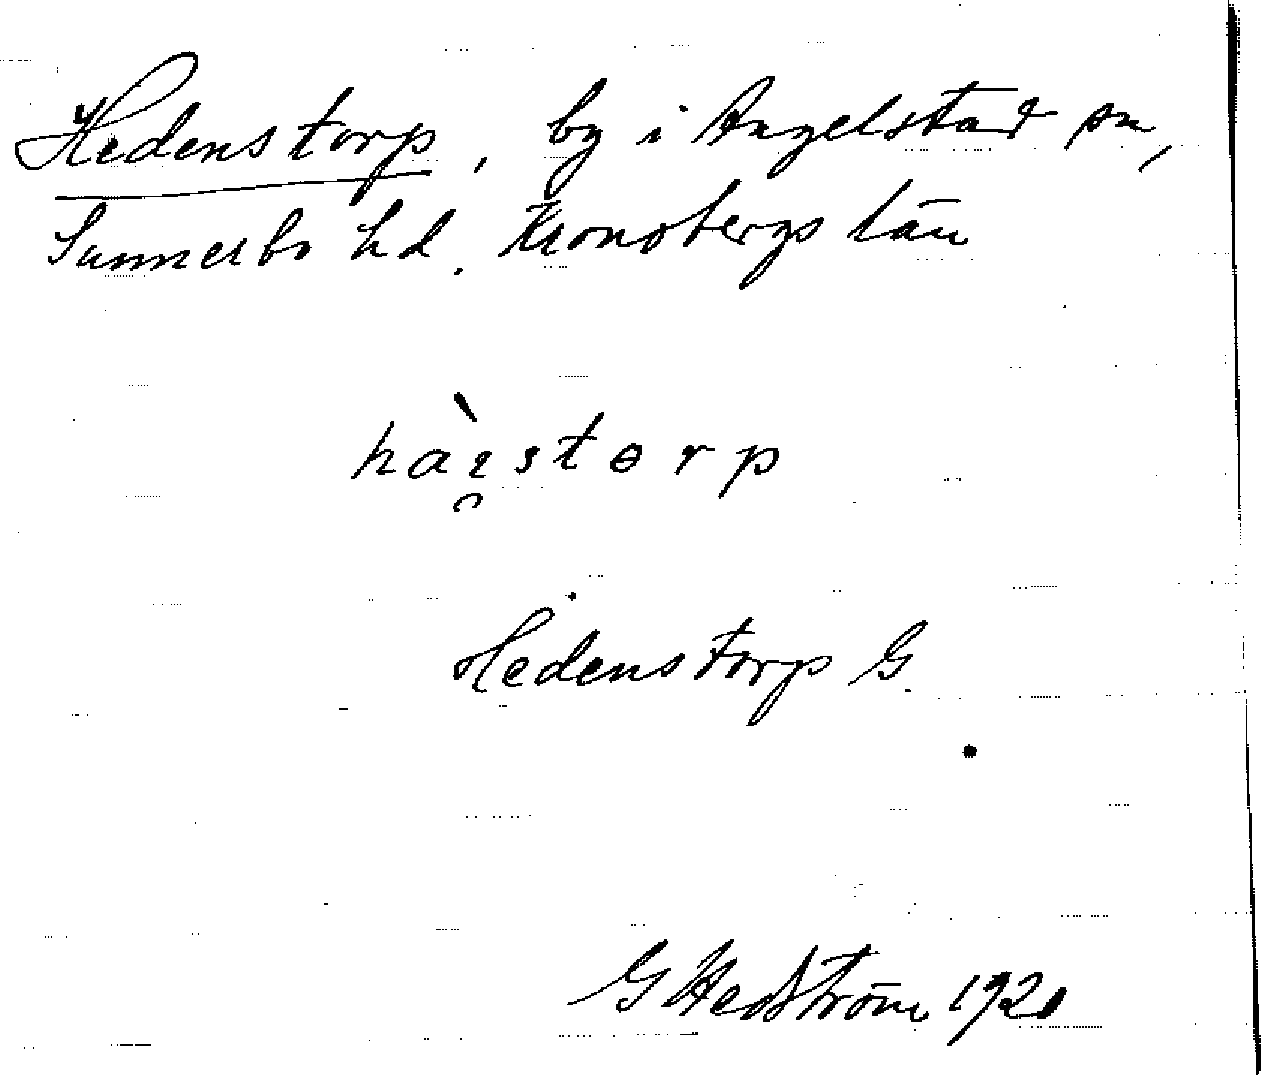 Hedenstorp, by i Angelstad sn,
Sunnerbo hd. Kronobergs län
Hedenstorp G.
G Hedström 192